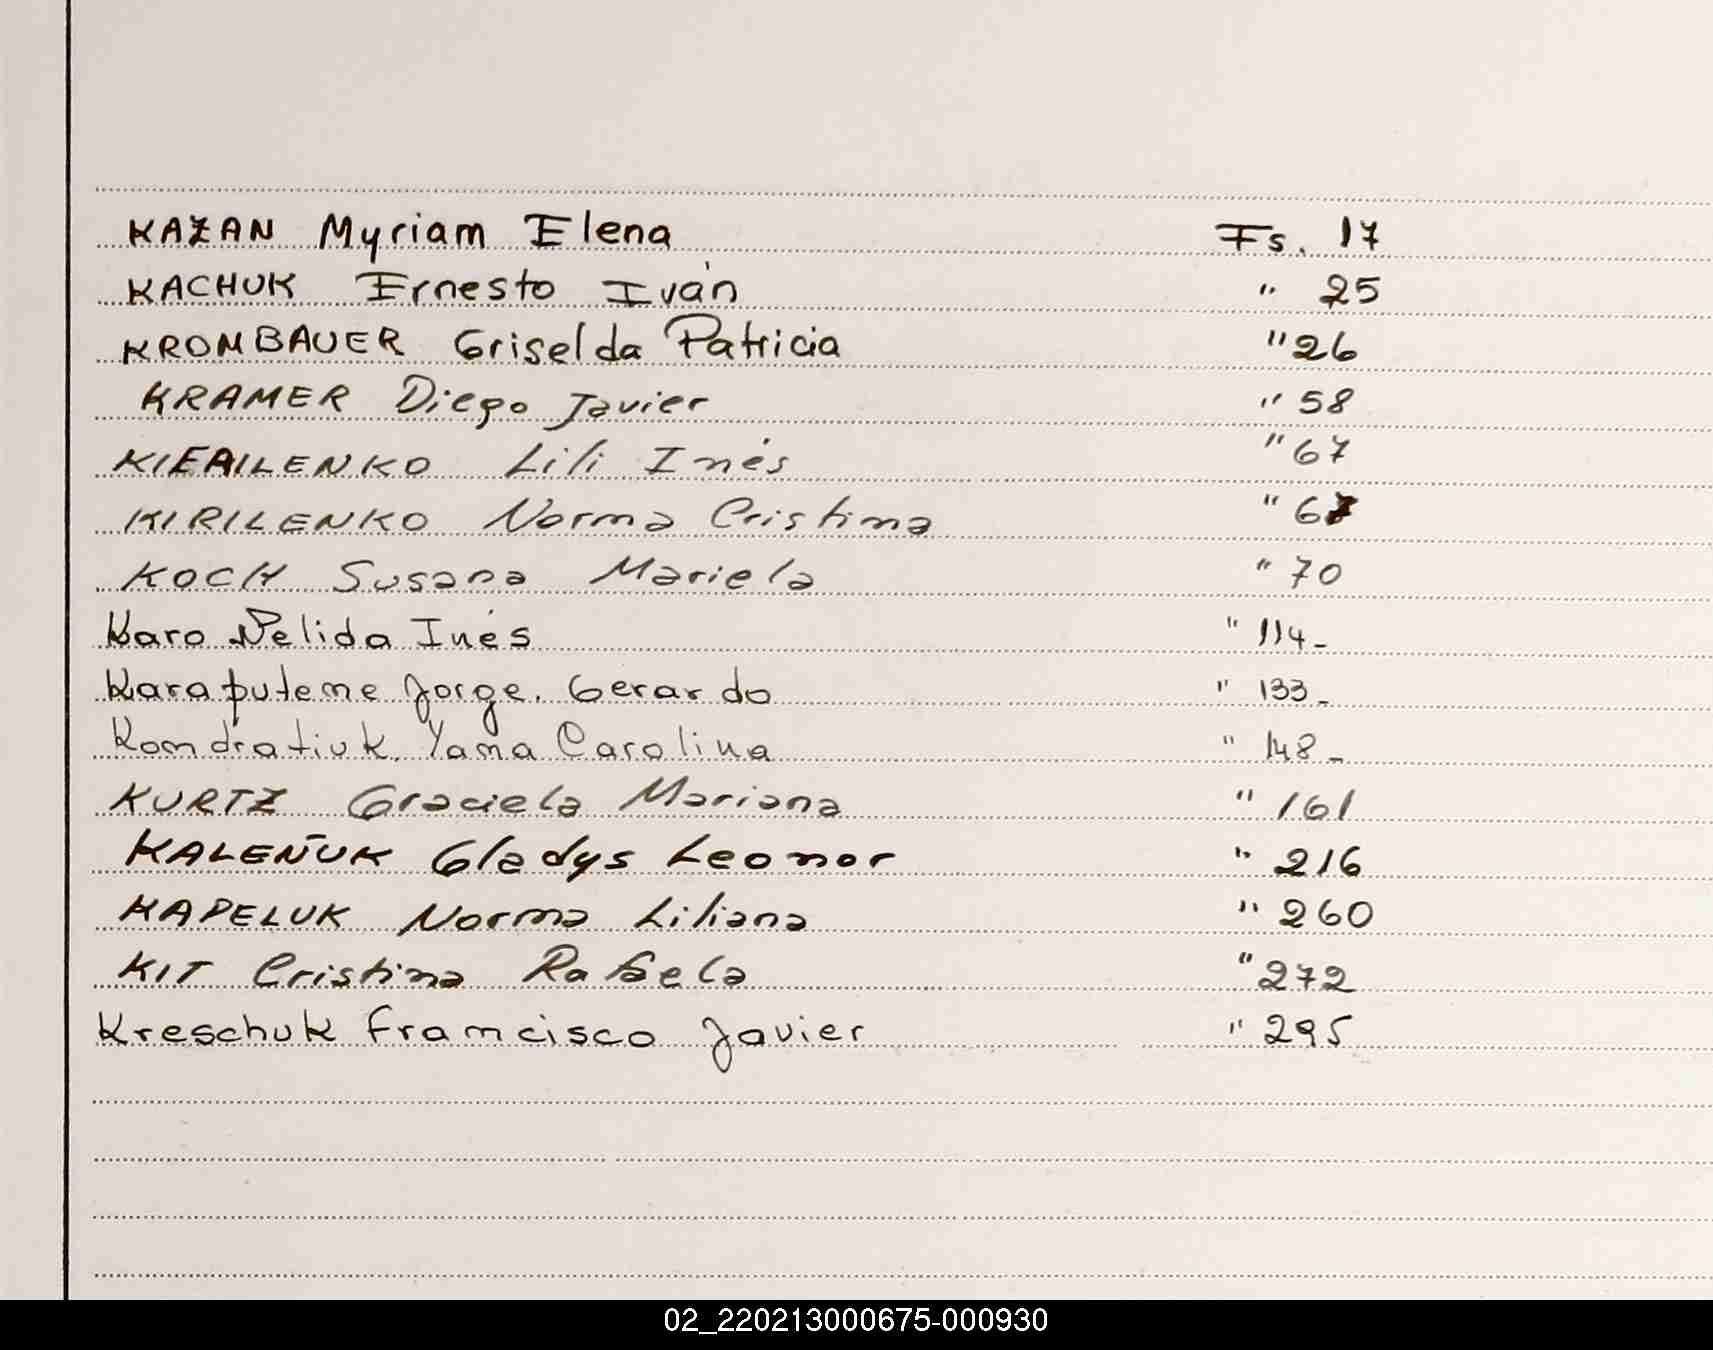 KAZAN Myriam Elena Fs. 17
KACHUK Ernesto Iván " 25
KROMBAUER Griselda Patricia " 26
KRAMER Diego Javier " 58
KIEAILENKO Lili Inés " 67
KIRILENKO Norma Cristina " 67
KOCH Susana Mariela " 70
Karo Nelida Inés " 114-
Karaputeme Jorge. Gerardo " 133-
Komdratiuk. Yama Carolina " 148-
KURTZ Graciela Mariana " 161
KALEÑUK Gladys Leonor " 216
KAPELUK Norma Liliana " 260
KIT Cristina Rafaela " 272
Kreschuk Francisco Javier " 295
02_220213000675-000930